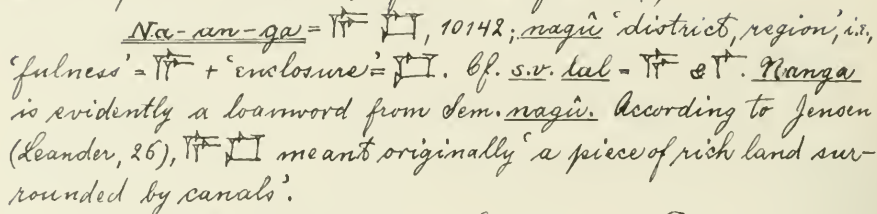 Na-an-ga = 𒇲 𒆸, 10142; nagû 'district, region', i.e.,
'fulness' = 𒇲 + 'enclosure' = 𒆸. Cf. s.v. lal = &. Nanga
is evidently a loanword from Sem. nagû. According to Jensen
(Leander, 26), meant originally 'a piece of rich land sur-
rounded by canals'.